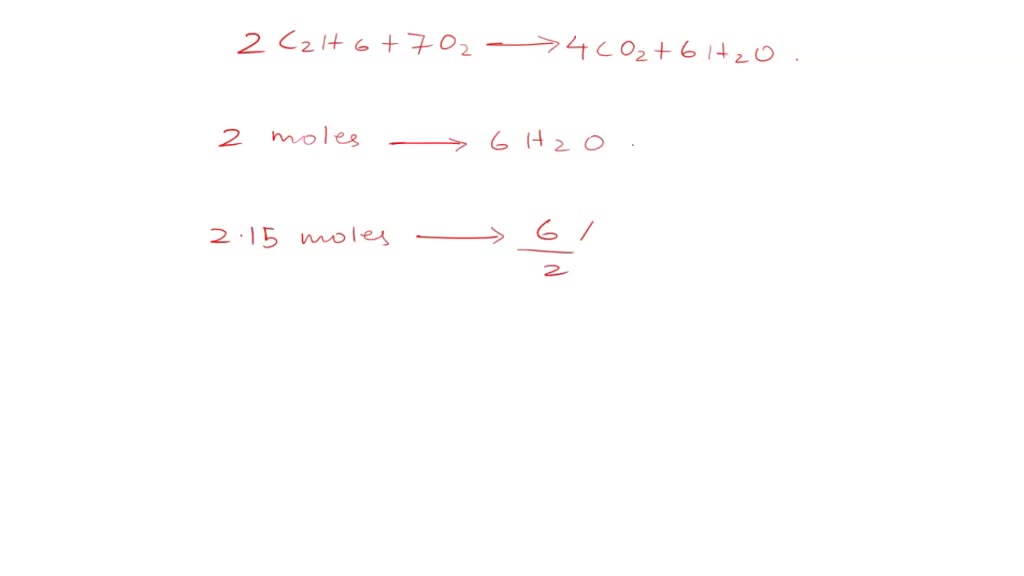 2 C2H6 + 7O2 ⟶ 4CO2 + 6H2O .
2 moles ⟶ 6 H2O .
2.15 moles ⟶ 6 /
2